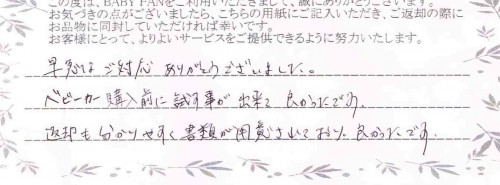 この度は、BABY FANをご利用いただきまして、誠にありがとうございます。
お気づきの点がございましたら、こちらの用紙にご記入いただき、ご返却の際に
お品物に同封していただければ幸いです。
お客様にとって、よりよいサービスをご提供できるように努力いたします。
早急なご対応 ありがとうございました。
ベビーカー購入前に試す事が出来て 良かったです。
返却も分かりやすく書類が用意されており 良かったです。